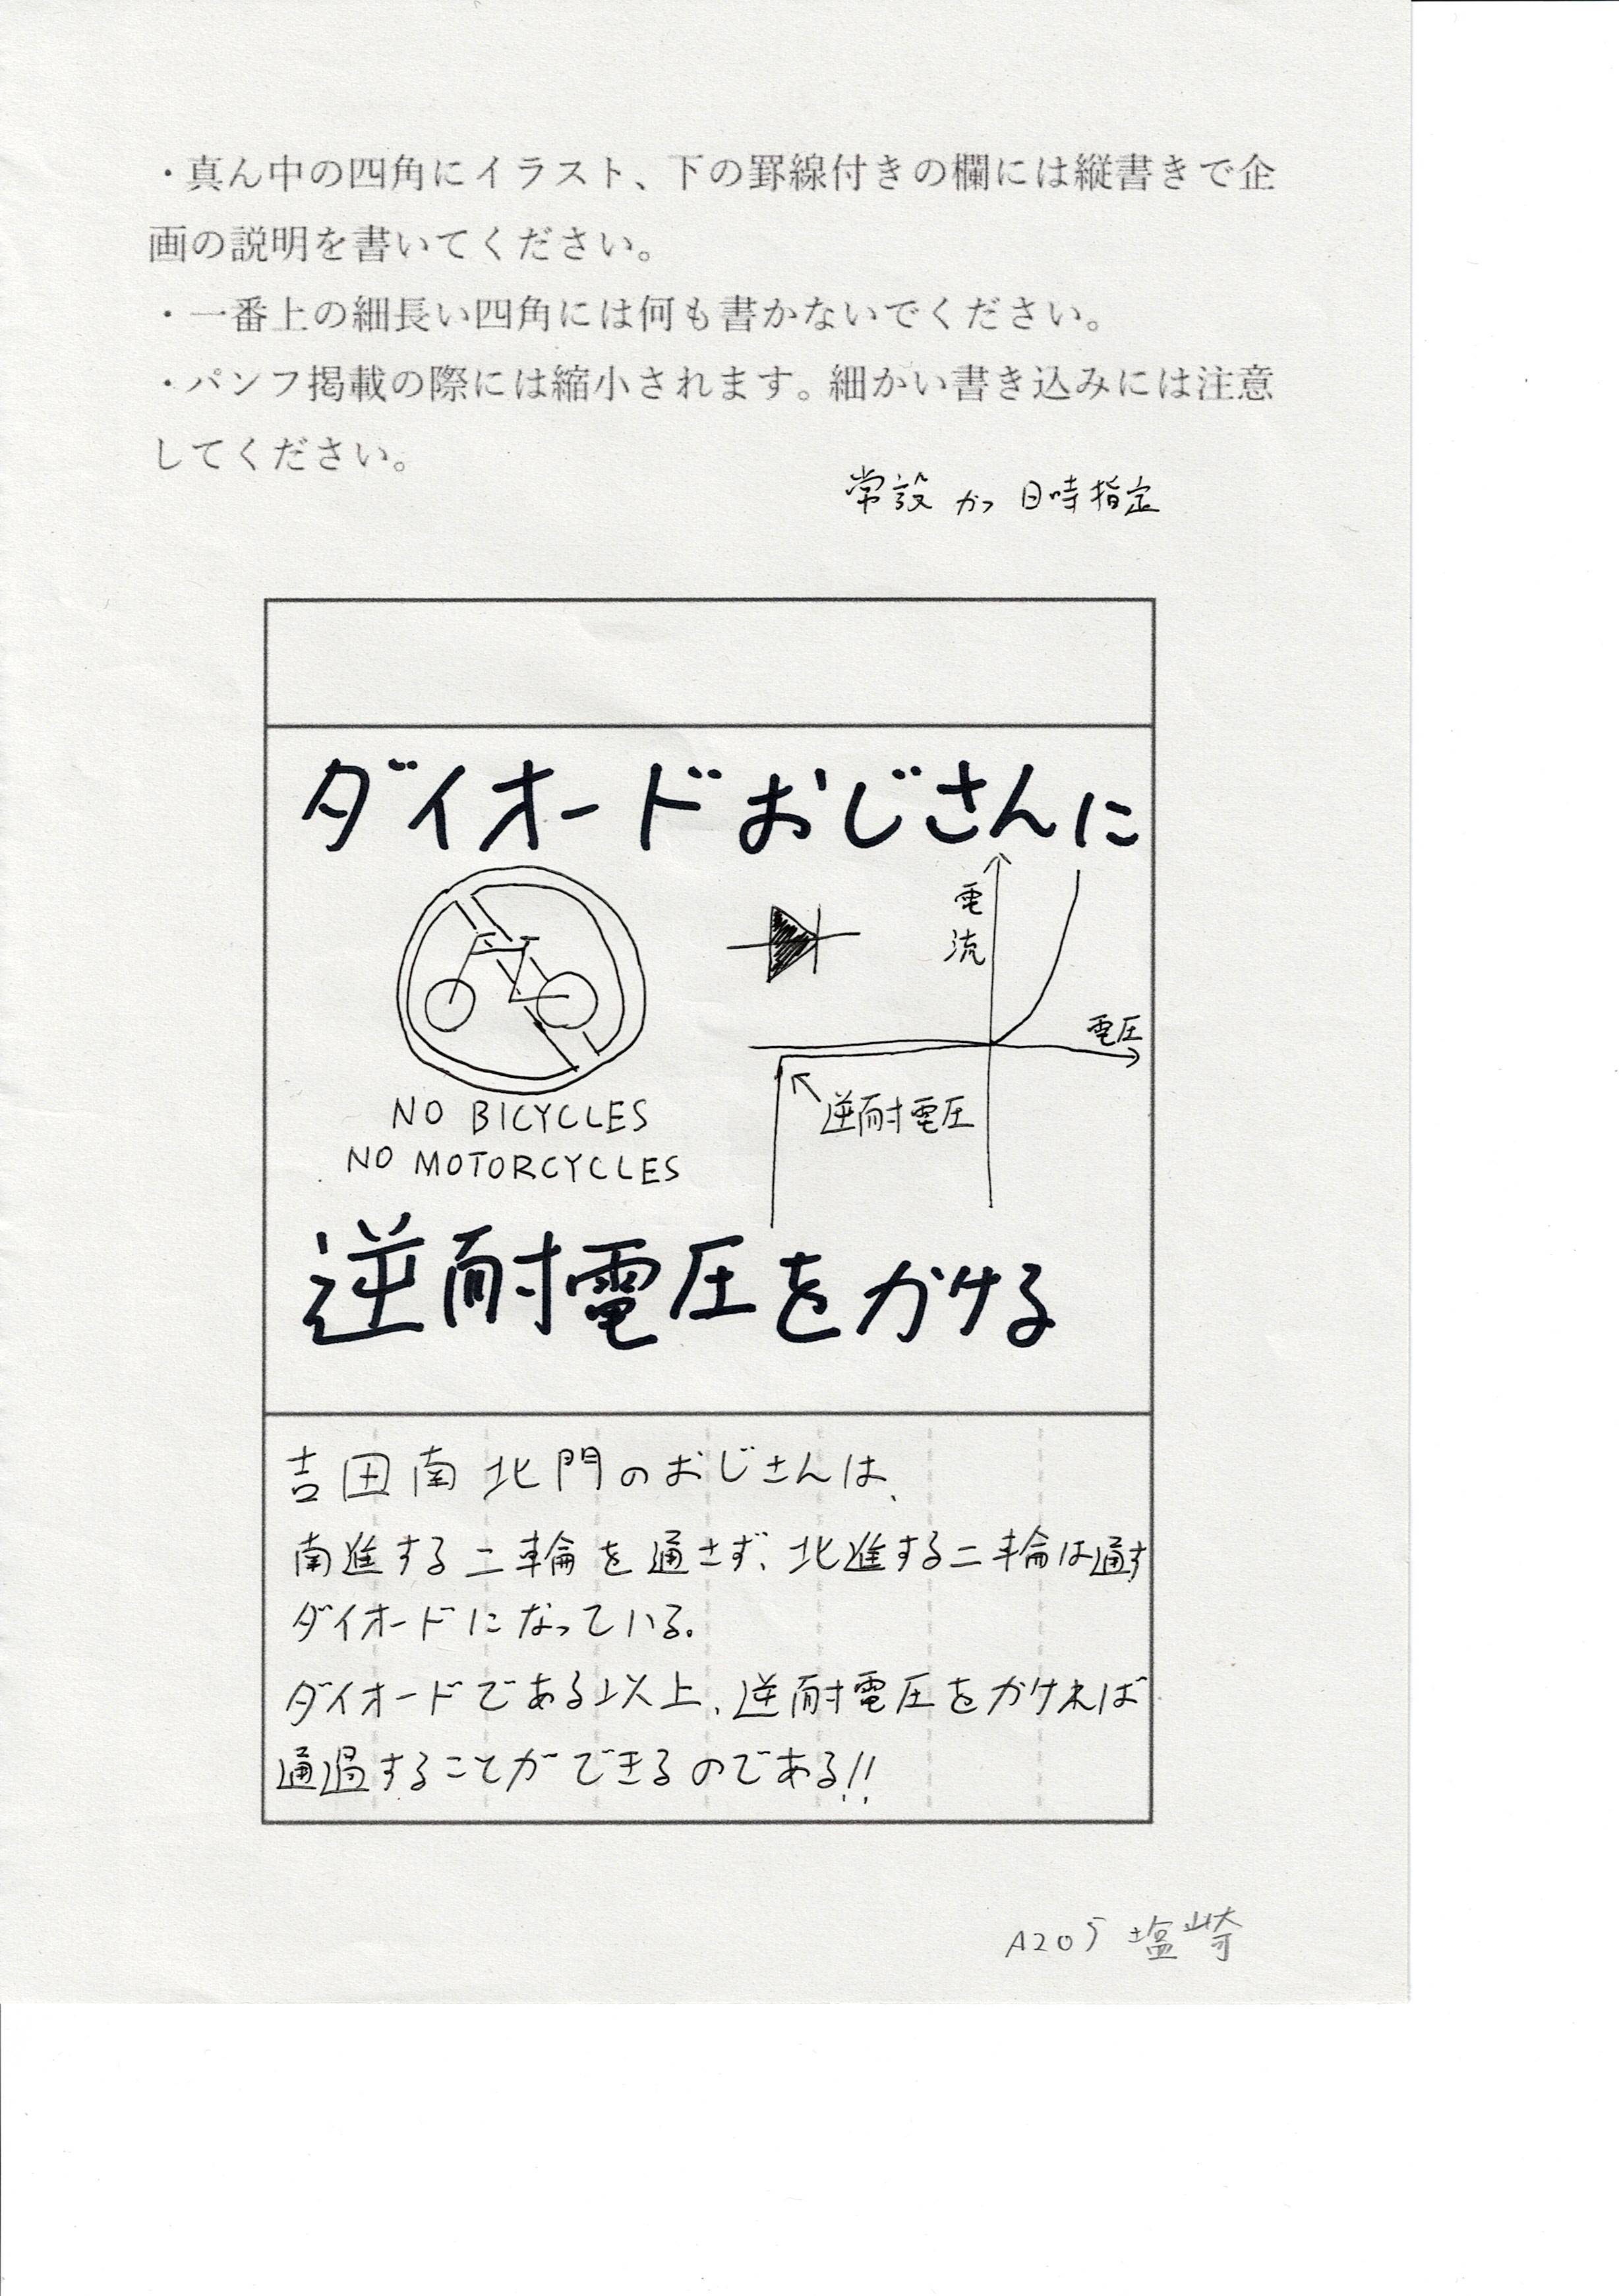 ・真ん中の四角にイラスト、下の罫線付きの欄には縦書きで企
画の説明を書いてください。
・一番上の細長い四角には何も書かないでください。
・パンフ掲載の際には縮小されます。細かい書き込みには注意
してください。
常設 かつ 日時指定
ダイオードおじさんに
電流
電圧
逆耐電圧
NO BICYCLES
NO MOTORCYCLES
逆耐電圧をかける
吉田南北門のおじさんは、
南進する二輪を通さず、北進する二輪は通す
ダイオードになっている。
ダイオードである以上、逆耐電圧をかければ
通過することができるのである!!
A205 塩崎